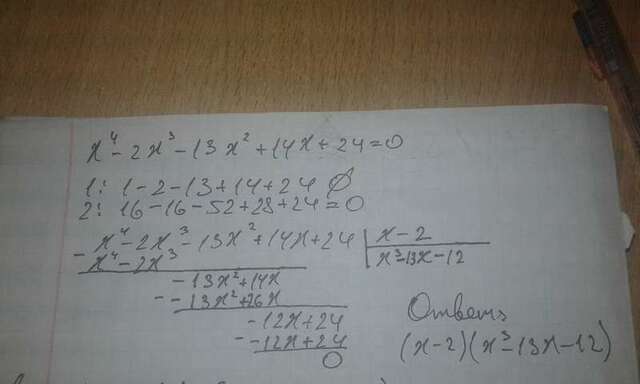 x⁴-2x³-13x²+14x+24=0
1: 1-2-13+14+24 ∅
2: 16-16-52+28+24=0
- x⁴-2x³-13x²+14x+24 | x-2
x⁴-2x³ | x³-13x-12
-13x²+14x
- -13x²+26x
-12x+24
- -12x+24
0
Ответ
(x-2)(x³-13x-12)